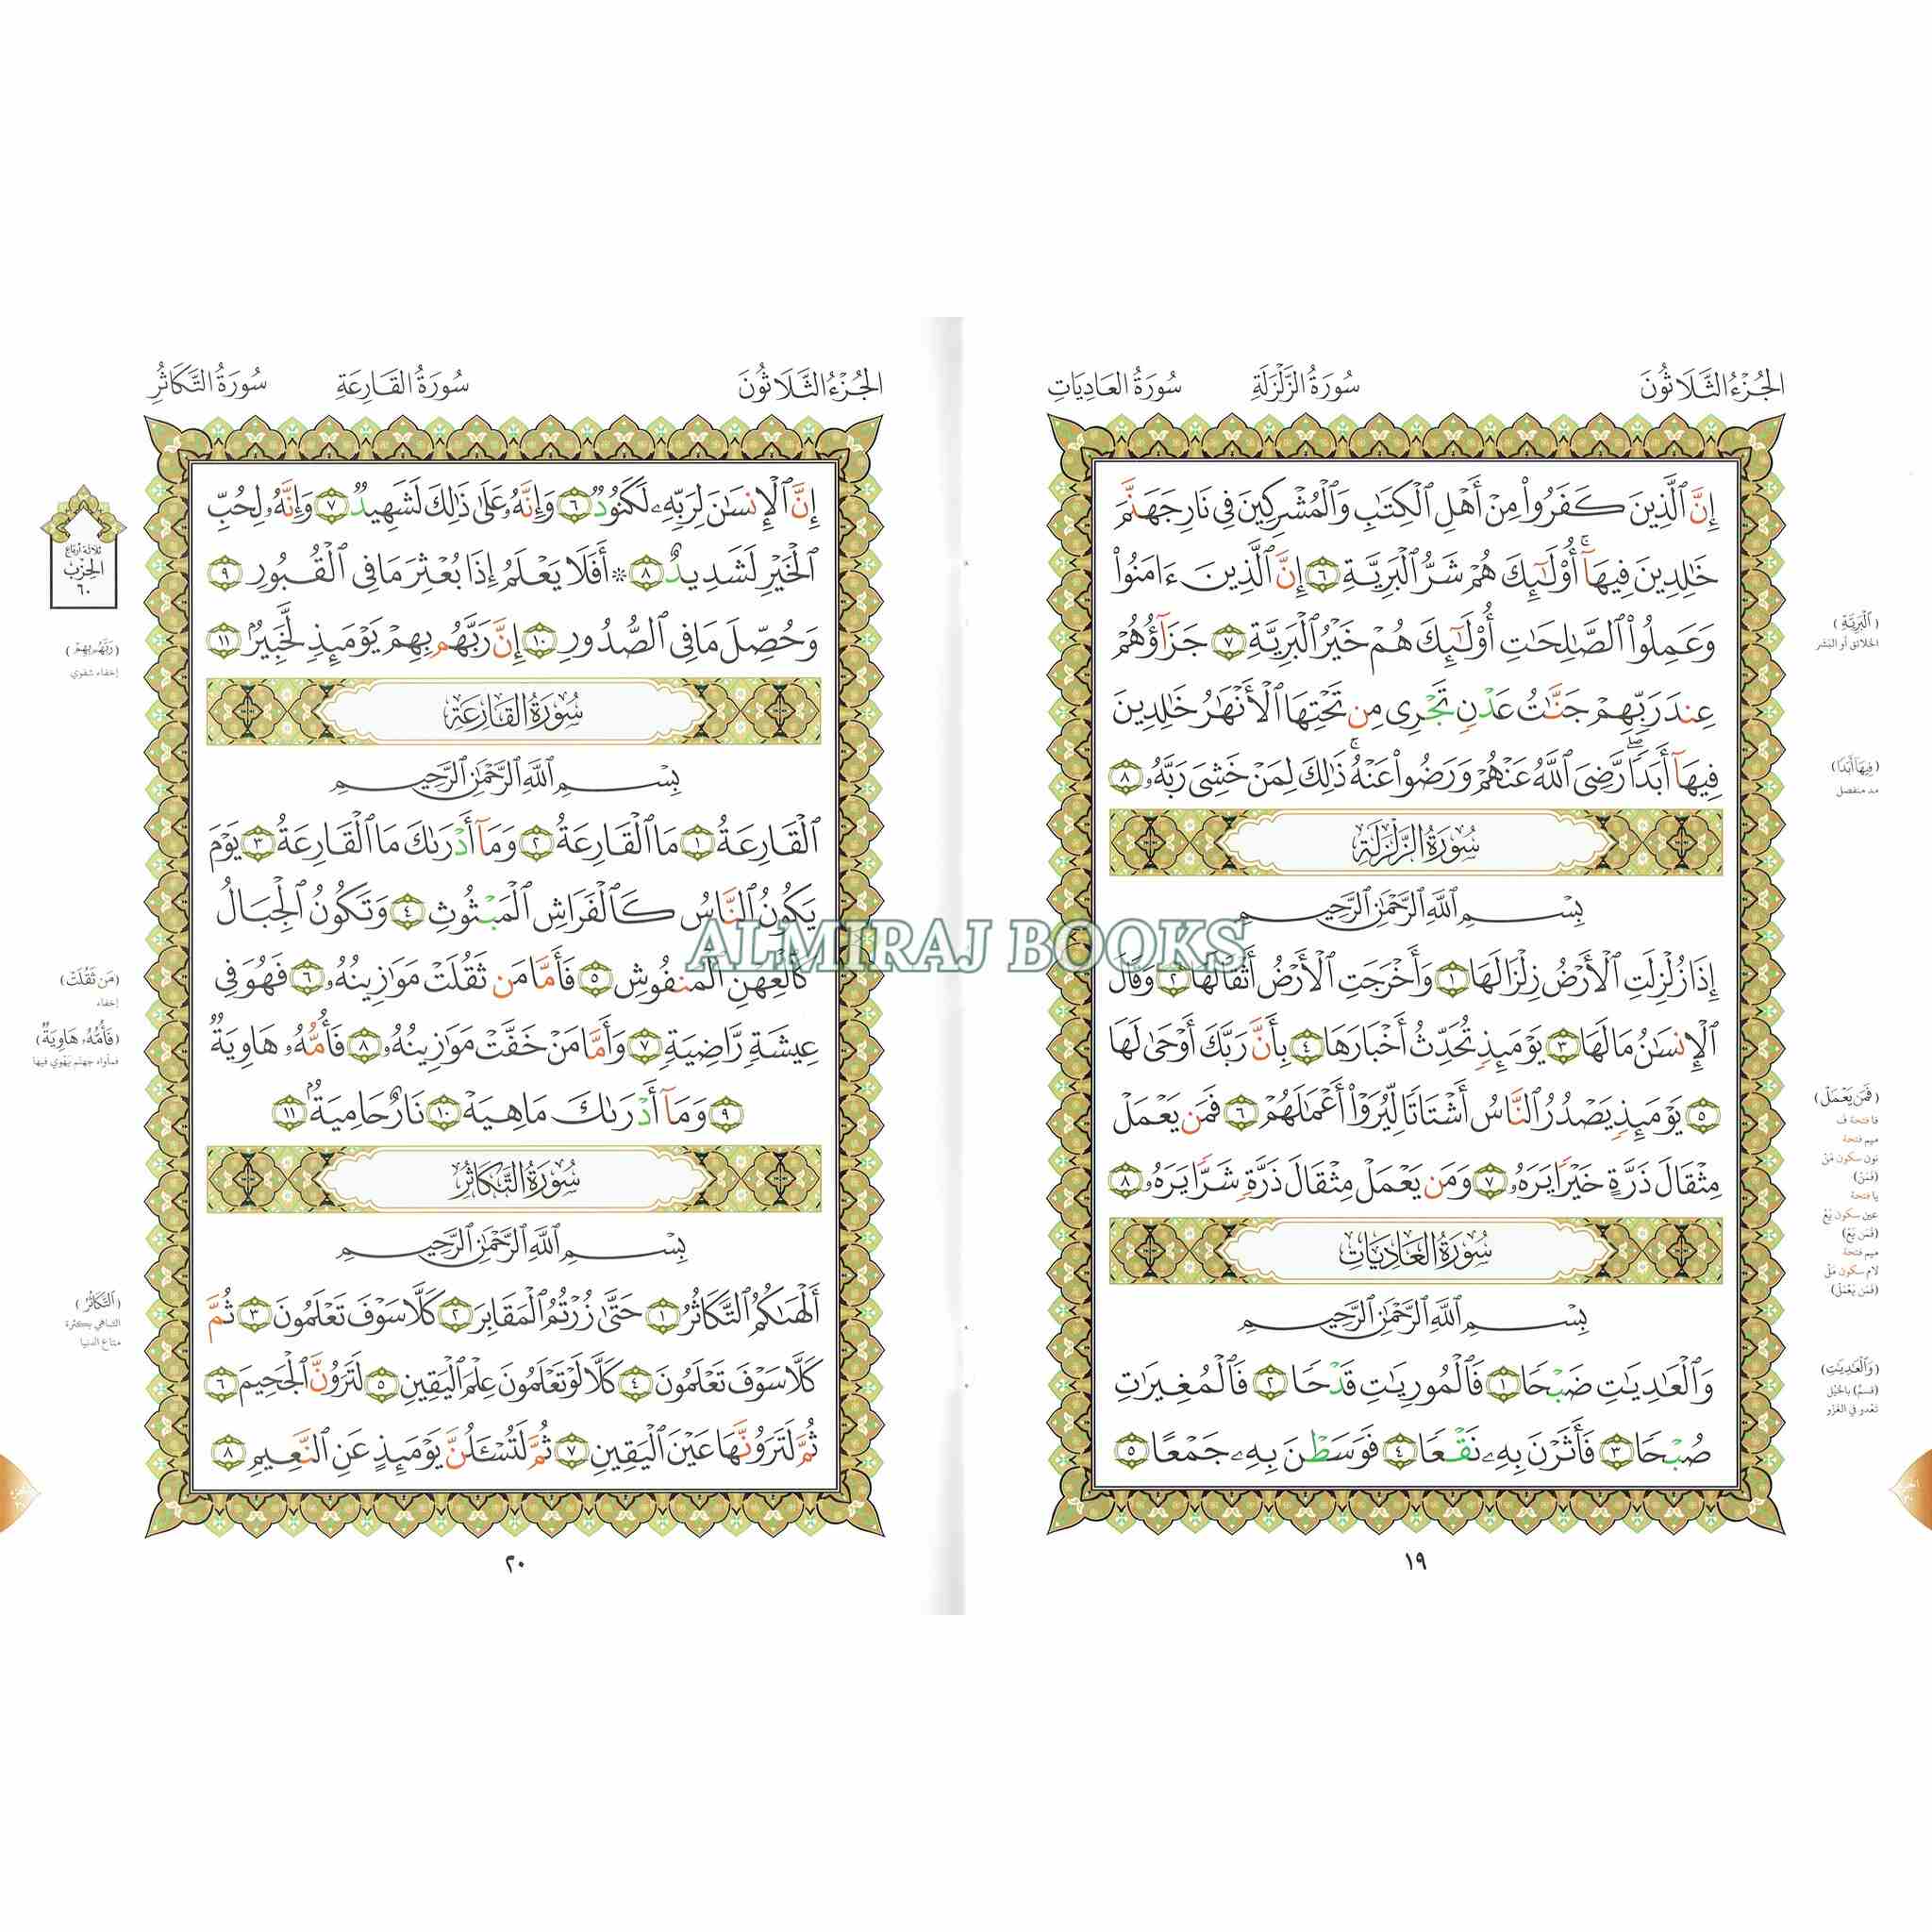 الجُزْءُ الثَّلَاثُونَ سُورَةُ الزَّلْزَلَةِ سُورَةُ العَادِيَاتِ
إِنَّ ٱلَّذِينَ كَفَرُوا۟ مِنْ أَهْلِ ٱلْكِتَٰبِ وَٱلْمُشْرِكِينَ فِى نَارِ جَهَنَّمَ
خَٰلِدِينَ فِيهَآ ۚ أُو۟لَٰٓئِكَ هُمْ شَرُّ ٱلْبَرِيَّةِ ٦ إِنَّ ٱلَّذِينَ ءَامَنُوا۟
وَعَمِلُوا۟ ٱلصَّٰلِحَٰتِ أُو۟لَٰٓئِكَ هُمْ خَيْرُ ٱلْبَرِيَّةِ ٧ جَزَآؤُهُمْ
عِندَ رَبِّهِمْ جَنَّٰتُ عَدْنٍ تَجْرِى مِن تَحْتِهَا ٱلْأَنْهَٰرُ خَٰلِدِينَ
فِيهَآ أَبَدًا ۖ رَّضِىَ ٱللَّهُ عَنْهُمْ وَرَضُوا۟ عَنْهُ ۚ ذَٰلِكَ لِمَنْ خَشِىَ رَبَّهُۥ ٨
سُورَةُ الزَّلْزَلَةِ
بِسْمِ ٱللَّهِ ٱلرَّحْمَٰنِ ٱلرَّحِيمِ
إِذَا زُلْزِلَتِ ٱلْأَرْضُ زِلْزَالَهَا ١ وَأَخْرَجَتِ ٱلْأَرْضُ أَثْقَالَهَا ٢ وَقَالَ
ٱلْإِنسَٰنُ مَا لَهَا ٣ يَوْمَئِذٍ تُحَدِّثُ أَخْبَارَهَا ٤ بِأَنَّ رَبَّكَ أَوْحَىٰ لَهَا
٥ يَوْمَئِذٍ يَصْدُرُ ٱلنَّاسُ أَشْتَاتًا لِّيُرَوْا۟ أَعْمَٰلَهُمْ ٦ فَمَن يَعْمَلْ
مِثْقَالَ ذَرَّةٍ خَيْرًا يَرَهُۥ ٧ وَمَن يَعْمَلْ مِثْقَالَ ذَرَّةٍ شَرًّا يَرَهُۥ ٨
سُورَةُ العَادِيَاتِ
بِسْمِ ٱللَّهِ ٱلرَّحْمَٰنِ ٱلرَّحِيمِ
وَٱلْعَٰدِيَٰتِ ضَبْحًا ١ فَٱلْمُورِيَٰتِ قَدْحًا ٢ فَٱلْمُغِيرَٰتِ
صُبْحًا ٣ فَأَثَرْنَ بِهِۦ نَقْعًا ٤ فَوَسَطْنَ بِهِۦ جَمْعًا ٥
١٩
( ٱلْبَرِيَّةِ )
الخلائق أو البَشر
( فِيهَآ أَبَدًا )
مد منفصل
( فَمَن يَعْمَلْ )
فا فتحة فَ
ميم فتحة
نون سكون مَنْ
(فَمَنْ)
يا فتحة
عين سكون يَعْ
(فَمَن يَعْ)
ميم فتحة
لام سكون مَلْ
(فَمَن يَعْمَلْ)
(وَٱلْعَٰدِيَٰتِ)
(قسمٌ) بالخَيْل
تَعْدو في الغَزْو
الجُزْءُ الثَّلَاثُونَ سُورَةُ القَارِعَةِ سُورَةُ التَّكَاثُرِ
إِنَّ ٱلْإِنسَٰنَ لِرَبِّهِۦ لَكَنُودٌ ٦ وَإِنَّهُۥ عَلَىٰ ذَٰلِكَ لَشَهِيدٌ ٧ وَإِنَّهُۥ لِحُبِّ
ٱلْخَيْرِ لَشَدِيدٌ ٨ ۞ أَفَلَا يَعْلَمُ إِذَا بُعْثِرَ مَا فِى ٱلْقُبُورِ ٩
وَحُصِّلَ مَا فِى ٱلصُّدُورِ ١٠ إِنَّ رَبَّهُم بِهِمْ يَوْمَئِذٍ لَّخَبِيرٌۢ ١١
سُورَةُ القَارِعَةِ
بِسْمِ ٱللَّهِ ٱلرَّحْمَٰنِ ٱلرَّحِيمِ
ٱلْقَارِعَةُ ١ مَا ٱلْقَارِعَةُ ٢ وَمَآ أَدْرَىٰكَ مَا ٱلْقَارِعَةُ ٣ يَوْمَ
يَكُونُ ٱلنَّاسُ كَٱلْفَرَاشِ ٱلْمَبْثُوثِ ٤ وَتَكُونُ ٱلْجِبَالُ
كَٱلْعِهْنِ ٱلْمَنفُوشِ ٥ فَأَمَّا مَن ثَقُلَتْ مَوَٰزِينُهُۥ ٦ فَهُوَ فِى
عِيشَةٍ رَّاضِيَةٍ ٧ وَأَمَّا مَنْ خَفَّتْ مَوَٰزِينُهُۥ ٨ فَأُمُّهُۥ هَاوِيَةٌ
٩ وَمَآ أَدْرَىٰكَ مَا هِيَهْ ١٠ نَارٌ حَامِيَةٌۢ ١١
سُورَةُ التَّكَاثُرِ
بِسْمِ ٱللَّهِ ٱلرَّحْمَٰنِ ٱلرَّحِيمِ
أَلْهَىٰكُمُ ٱلتَّكَاثُرُ ١ حَتَّىٰ زُرْتُمُ ٱلْمَقَابِرَ ٢ كَلَّا سَوْفَ تَعْلَمُونَ ٣ ثُمَّ
كَلَّا سَوْفَ تَعْلَمُونَ ٤ كَلَّا لَوْ تَعْلَمُونَ عِلْمَ ٱلْيَقِينِ ٥ لَتَرَوُنَّ ٱلْجَحِيمَ ٦
ثُمَّ لَتَرَوُنَّهَا عَيْنَ ٱلْيَقِينِ ٧ ثُمَّ لَتُسْـَٔلُنَّ يَوْمَئِذٍ عَنِ ٱلنَّعِيمِ ٨
٢٠
ثلاثة أرباع
الحِزْب
٦٠
(رَبَّهُم بِهِمْ)
إخفاء شفوي
(مَن ثَقُلَتْ)
إخفاء
(فَأُمُّهُۥ هَاوِيَةٌ)
فمأواه جهنم يَهْوي فيها
( ٱلتَّكَاثُرُ )
التباهي بكثرة
متاع الدنيا
ALMIRAJ BOOKS